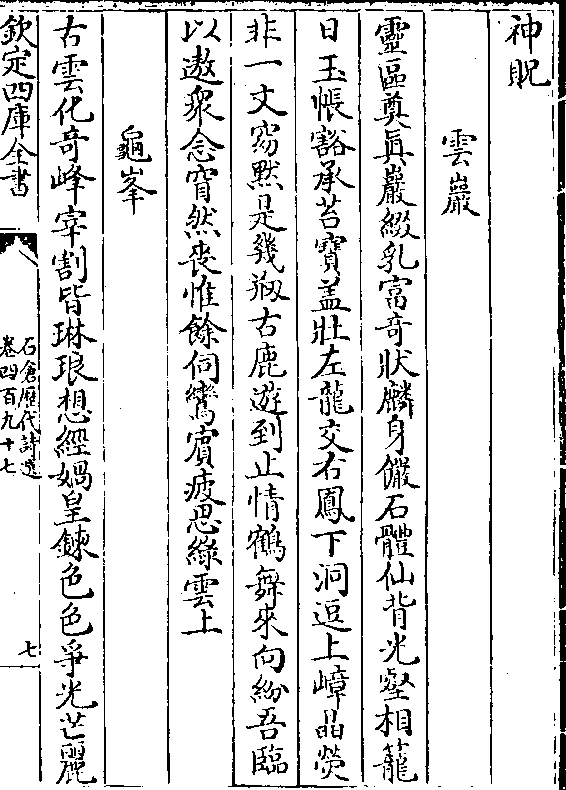 神貺
雲巖
靈區奠真巖綴乳富奇狀麟身儼石體仙背光壑相籠
日玉帳豁承苔寶蓋壯左龍交右鳳下洞逗上嶂晶熒
非一丈窈黙是幾㧾古鹿遊到止情鶴舞來向紛吾臨
以遨衆念窅然喪惟餘伺鸞賔疲思綠雲上
龜峯
古雲化奇峰宰割皆琳琅想經媧皇鍊色色爭光芒麗
欽定四庫全書
石倉歷代詩選
卷四百九十七
七